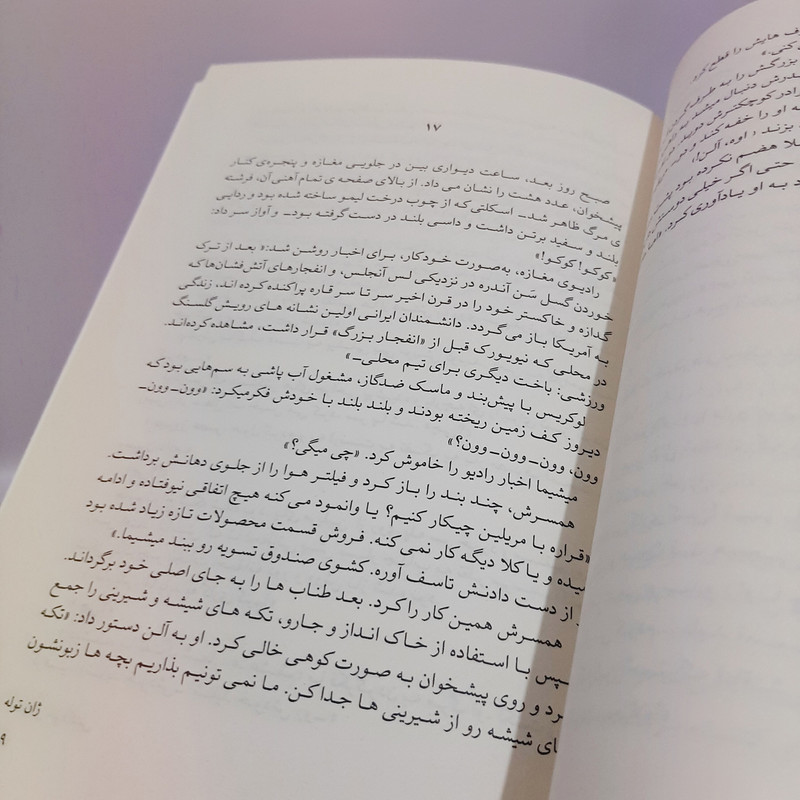 ۱۷
صبح روز بعد، ساعت دیواری بین در جلویی مغازه و پنجره‌ی کنار
پیشخوان، عدد هشت را نشان می داد. از بالای صفحه ی تمام آهنی آن، فرشته
ی مرگ ظاهر شد– اسکلتی که از چوب درخت لیمو ساخته شده بود و ردایی
بلند و سفید برتن داشت و داسی بلند در دست گرفته بود– و آواز سر داد:
«کوکو! کوکو!»
رادیوی مغازه، به‌صورت خودکار، برای اخبار روشن شد:« بعد از ترک
خوردن گسل سَن آندره در نزدیکی لس آنجلس، و انفجارهای آتش‌فشان‌ها که
گدازه و خاکستر خود را در قرن اخیر سر تا سر قاره پراکنده کرده اند، زندگی
به آمریکا باز می گردد. دانشمندان ایرانی اولین نشانه های رویش گلسنگ
در محلی که نیویورک قبل از «انفجار بزرگ» قرار داشت، مشاهده کرده‌اند.
ورزشی: باخت دیگری برای تیم محلی–»
لوکریس با پیش‌بند و ماسک ضدگاز، مشغول آب پاشی به سم‌هایی بود که
دیروز کف زمین ریخته بودند و بلند بلند با خودش فکرمیکرد: «وون–وون–
وون، وون–وون–وون؟»
میشیما اخبار رادیو را خاموش کرد. «چی میگی؟»
همسرش، چند بند را باز کرد و فیلتر هوا را از جلوی دهانش برداشت.
«قراره با مریلین چیکار کنیم؟ یا وانمود می‌کنه هیچ اتفاقی نیوفتاده و ادامه
میده و یا کلا دیگه کار نمی کنه. فروش قسمت محصولات تازه زیاد شده بود
از دست دادنش تاسف آوره. کشوی صندوق تسویه رو ببند میشیما.»
همسرش همین کار را کرد. بعد طناب ها را به جای اصلی خود برگرداند.
سپس با استفاده از خاک انداز و جارو، تکه های شیشه و شیرینی را جمع
کرد و روی پیشخوان به صورت کوهی خالی کرد. او به آلن دستور داد: «تکه
های شیشه رو از شیرینی ها جدا کن. ما نمی تونیم بذاریم بچه ها زبونشون
ژان توله